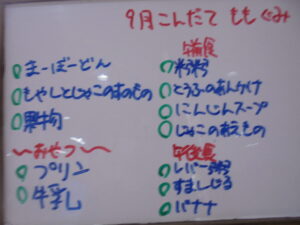 9月こんだて ももぐみ
まーぼーどん
もやしとじゃこのすのもの
果物
〜おやつ〜
プリン
牛乳
午前食
おかゆ
とうふのあんかけ
にんじんスープ
じゃこのあえもの
午後食
レバー粥
すましじる
バナナ